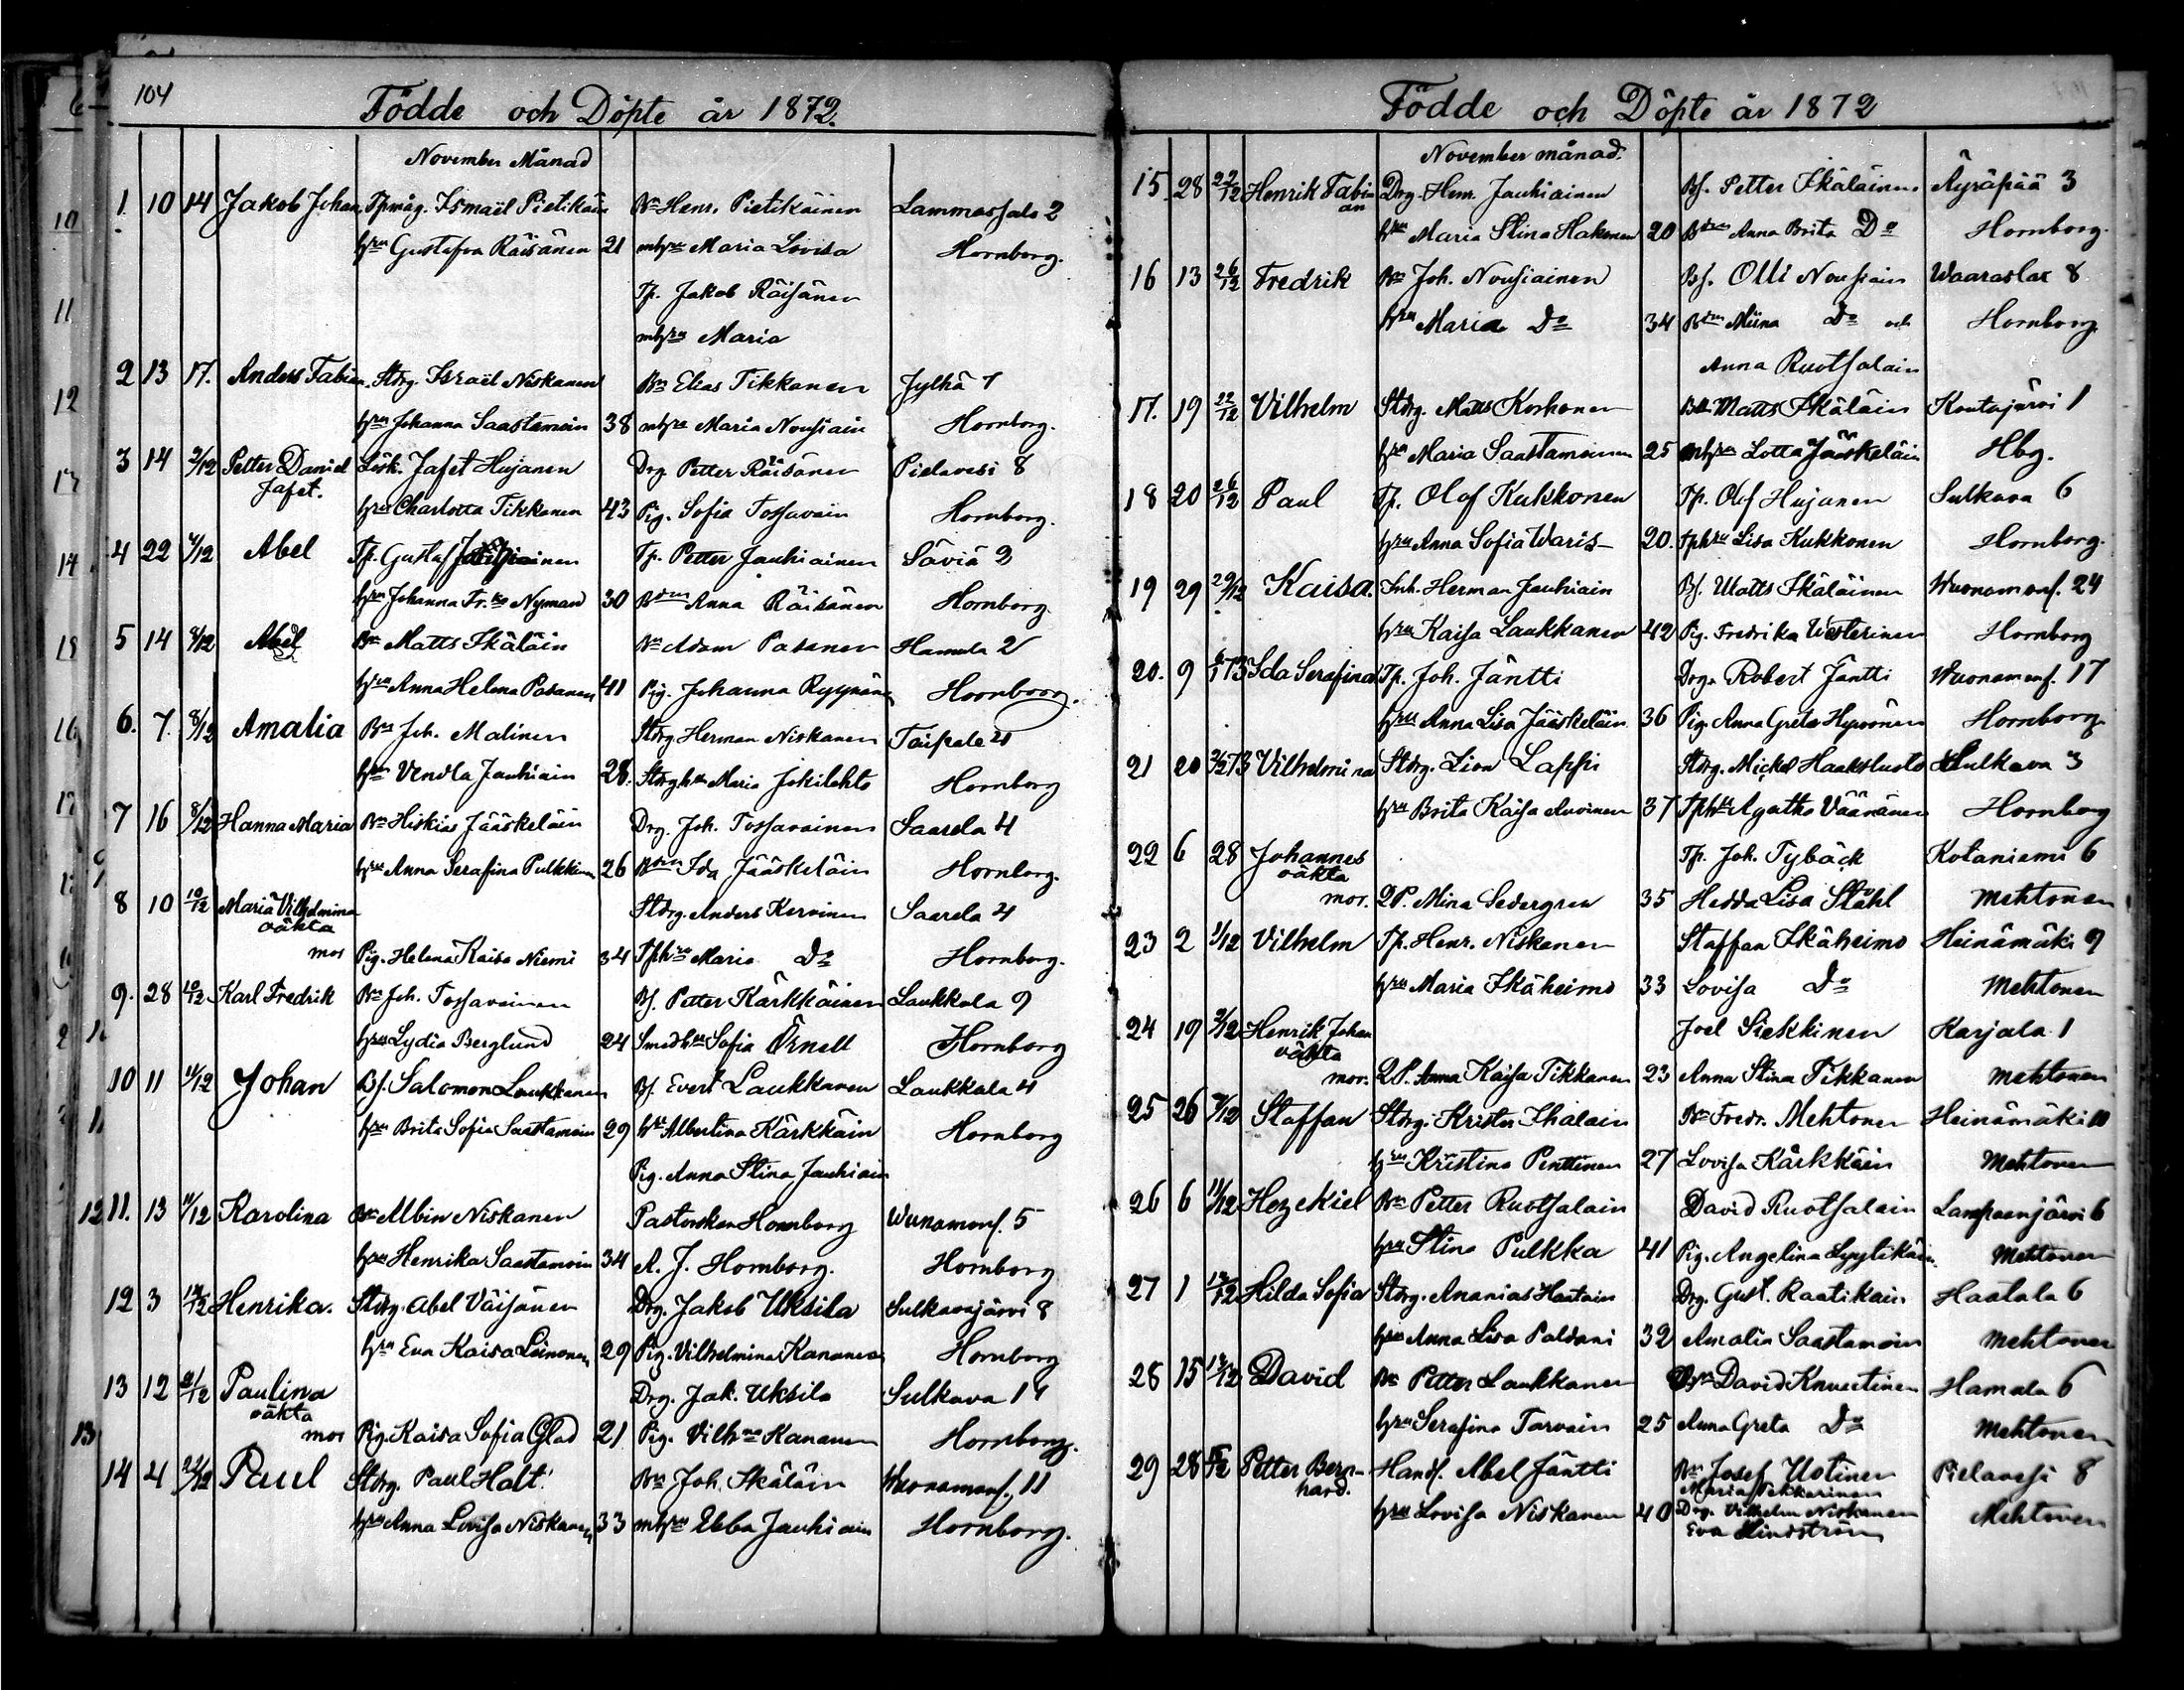 104
Födde och Döpte år 1872.
November Månad
1. 10 14 Jakob Johan Tpmåg. Ismaël Pietikäin Bn Henr. Pietikäinen Lammassalo 2
hru Gustafva Räisänen 21 mhru Maria Lovisa Hornborg.
Tp. Jakob Räisänen
mhru Maria
2 13 17. Anders Fabian Stdrg. Israël Niskanen Bn Elias Tikkanen Jylhä 7
hru Johanna Saastamoin 38 mhru Maria Nousiain Hornborg.
3 14 2/12 Petter Daniel Lösk. Jafet Hujanen Drg Petter Räisänen Pielavesi 8
Jafet.
hru Charlotta Tikkanen 43 Pig. Sofia Tossavain Hornborg.
4 22 4/12 Abel Tp. Gustaf Tp. Petter Jauhiainen Säviä 2
hru Johanna Fr.ka Nyman 30 Bdru Anna Räisänen Hornborg
5 14 8/12 Abel Bn Matts Ikäläin Bn Adam Pasanen Hamula 2
hru Anna Helena Pasanen 41 Pig. Johanna Ryynänen Hornborg.
6. 7. 8/12 Amalia Bn Joh. Malinen Stdrg Herman Niskanen Taipale 4
hru Vendla Jauhiain 28. Stdrghu Maria Jokilehto Hornborg
7 16 8/12 Hanna Maria Bn Hiskias Jääskeläin Drg. Joh. Tossavainen Saarela 4
hru Anna Serafina Pulkkinen 26 Bdru Ida Jääskeläin Hornborg.
8 10 10/12 Maria Vilhelmina Stdrg. Anders Kervinen Saarela 4
oäkta
mor Pig. Helena Kaisa Niemi 34 Tphru Maria Do Hornborg.
9. 28 10/12 Karl Fredrik Bn Joh. Tossavainen Bs. Petter Kärkkäinen Laukkala 9
hru Lydia Berglund 24 Smedhu Sofia Örnell Hornborg
10 11 11/12 Johan Bs. Salomon Laukkanen Bs. Evert Laukkanen Laukkala 4
hru Brita Sofia Saastamoin 29 hu Albertina Kärkkäin Hornborg
Pig. Anna Stina Jauhiain
11. 13 11/12 Karolina Bn Albin Niskanen Pastorskan Hornborg Wuonamons. 5
hru Henrika Saastamoin 34 A. J. Hornborg. Hornborg
12 3 14/12 Henrika. Stdrg. Abel Väisänen Drg. Jakob Uksila Sulkavajärvi 8
hru Eva Kaisa Leinonen 29 Pig. Vilhelmina Kananen Hornborg
13 12 21/12 Paulina Drg. Jak. Uksila Sulkava 14
oäkta
mor Pig. Kaisa Sofia Glad 21 Pig. Vilhna Kananen Hornborg.
14 4 22/12 Paul Stdrg. Paul Halt Bn Joh. Ikäläin Wuonamons. 11
hru Anna Lovisa Niskanen 33 mhru Ebba Jauhiain Hornborg.
Födde och Döpte år 1872
November månad.
15. 28 22/12 Henrik Fabian Drg. Henr. Jauhiainen Bs. Petter Ikäläinen Äyräpää 3
hru Maria Stina Hakanen 20 Bdru Anna Brita Do Hornborg.
16 13 26/12 Fredrik Bn Joh. Nousiainen Bs. Olli Nousiain Waaraslax 8
hru Maria Do 34 Bdru Miina Do och Hornborg.
Anna Ruotsalain
17. 19 22/12 Vilhelm Stdrg. Matts Korhonen Bn Matts Ikäläin Koutajärvi 1
hru Maria Saastamoinen 25 mhru Lotta Jääskeläin Hbg.
18 20 26/12 Paul Tp. Olof Kukkonen Tp. Olof Hujanen Sulkava 6
hru Anna Sofia Waris 20. Tphru Lisa Kukkonen Hornborg.
19 29 29/12 Kaisa. Inh. Herman Jauhiain Bs. Matts Ikäläinen Wuonamons. 24
hru Kaisa Laukkanen 42 Pig. Fredrika Westerinen Hornborg
20. 9 6/1 73 Ida Serafina Tp. Joh. Jäntti Drg. Robert Jäntti Wuonamons. 17
hru Anna Lisa Jääskeläin 36 Pig. Anna Greta Hyvönen Hornborg.
21 20 2/2 73 Vilhelmina Stdrg. Lion Lappi Stdrg. Mickel Haaksluoto Sulkava 3
hru Brita Kaisa Auvinen 37 Tphu Agatha Väänänen Hornborg
22 6 28 Johannes Tp. Joh. Tybäck Kotaniemi 6
oäkta
mor. QP. Mina Sedergren 35 Hedda Lisa Ståhl Mehtonen
23 2 1/12 Vilhelm Tp. Henr. Niskanen Staffan Ikäheimo Heinämäki 9
hru Maria Ikäheimo 33 Lovisa Do Mehtonen
24 19 2/12 Henrik Johan Joel Siekkinen Karjala 1
oäkta
mor. QP. Anna Kaisa Tikkanen 23 Anna Stina Tikkanen Mehtonen
25 26 7/12 Staffan Stdrg. Krister Ihalain Bn Fredr. Mehtonen Heinämäki 10
hru Kristina Penttinen 27 Lovisa Kärkkäin Mehtonen
26 6 11/12 Hezekiel Bn Petter Ruotsalain David Ruotsalain Lampaanjärvi 6
hru Stina Pulkka 41 Pig. Angelina Lyytikäin Mehtonen
27 1 12/12 Hilda Sofia Stdrg. Ananias Haatain Drg. Gust. Raatikain Haatala 6
hru Anna Lisa Paldani 32 Amalia Saastamoin Mehtonen
28 15 13/12 David Bn Petter Laukkanen David Knuutinen Hamula 6
hru Serafina Tarvain 25 Anna Greta Do Mehtonen
29 28 Petter Bern- Hands. Abel Jäntti Bn Josef Ustinen Pielavesi 8
hard. Maria Pekkarinen
hru Lovisa Niskanen 40 Drg. Vilhelm Niskanen Mehtonen
Eva Lindström